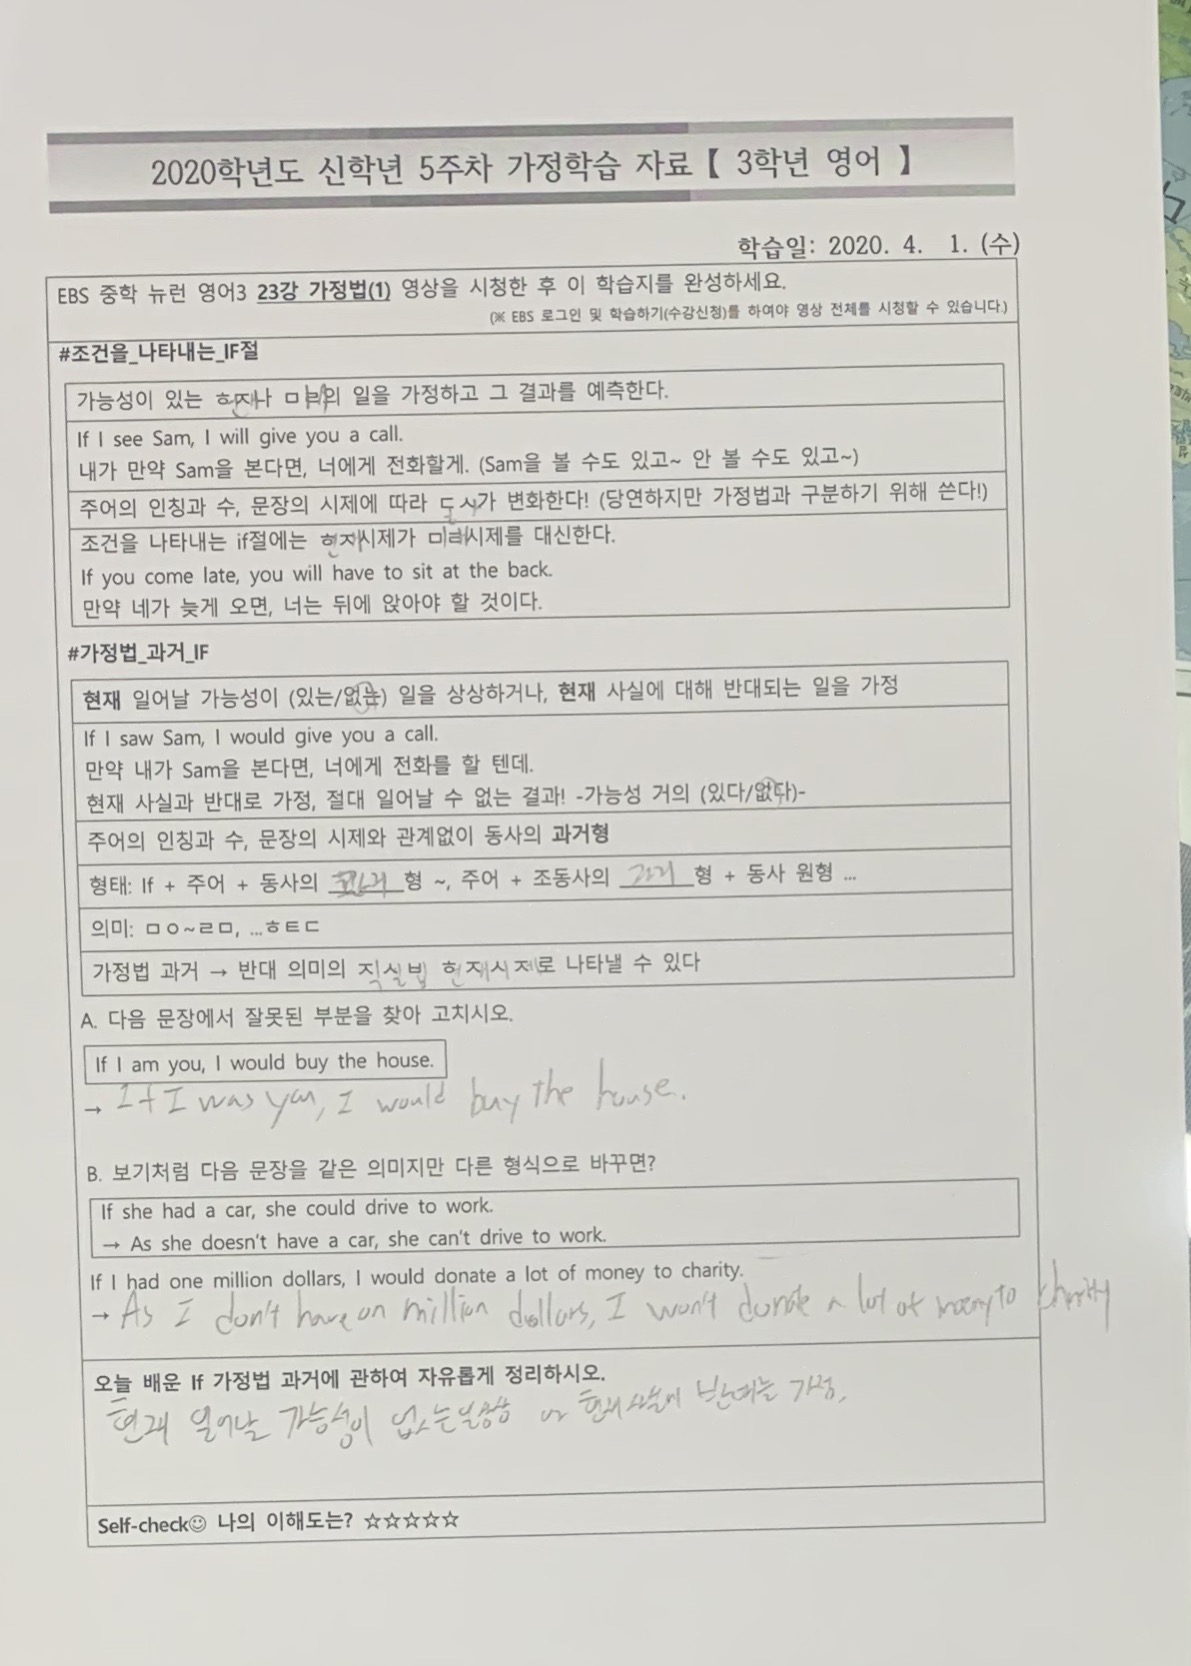 2020학년도 신학년 5주차 가정학습 자료【 3학년 영어 】
학습일: 2020. 4. 1. (수)
EBS 중학 뉴런 영어3 23강 가정법(1) 영상을 시청한 후 이 학습지를 완성하세요.
(※ EBS 로그인 및 학습하기(수강신청)를 하여야 영상 전체를 시청할 수 있습니다.)
#조건을_나타내는_IF절
가능성이 있는 현재나 미래의 일을 가정하고 그 결과를 예측한다.
If I see Sam, I will give you a call.
내가 만약 Sam을 본다면, 너에게 전화할게. (Sam을 볼 수도 있고~ 안 볼 수도 있고~)
주어의 인칭과 수, 문장의 시제에 따라 동사가 변화한다! (당연하지만 가정법과 구분하기 위해 쓴다!)
조건을 나타내는 if절에는 현재시제가 미래시제를 대신한다.
If you come late, you will have to sit at the back.
만약 네가 늦게 오면, 너는 뒤에 앉아야 할 것이다.
#가정법_과거_IF
현재 일어날 가능성이 (있는/없는) 일을 상상하거나, 현재 사실에 대해 반대되는 일을 가정
If I saw Sam, I would give you a call.
만약 내가 Sam을 본다면, 너에게 전화를 할 텐데.
현재 사실과 반대로 가정, 절대 일어날 수 없는 결과! -가능성 거의 (있다/없다)-
주어의 인칭과 수, 문장의 시제와 관계없이 동사의 과거형
형태: If + 주어 + 동사의 과거 형 ~, 주어 + 조동사의 과거 형 + 동사 원형 ...
의미: ㅁㅇ~ㄹㅁ, ...ㅎㅌㄷ
가정법 과거 → 반대 의미의 직설법 현재시제로 나타낼 수 있다
A. 다음 문장에서 잘못된 부분을 찾아 고치시오.
If I am you, I would buy the house.
→ If I was you, I would buy the house.
B. 보기처럼 다음 문장을 같은 의미지만 다른 형식으로 바꾸면?
If she had a car, she could drive to work.
→ As she doesn't have a car, she can't drive to work.
If I had one million dollars, I would donate a lot of money to charity.
→ As I don't have on million dollars, I won't donate a lot of money to charity
오늘 배운 If 가정법 과거에 관하여 자유롭게 정리하시오.
현재 일어날 가능성이 없는 일 상상 or 현재 사실에 반대되는 가정.
Self-check☺ 나의 이해도는? ☆☆☆☆☆